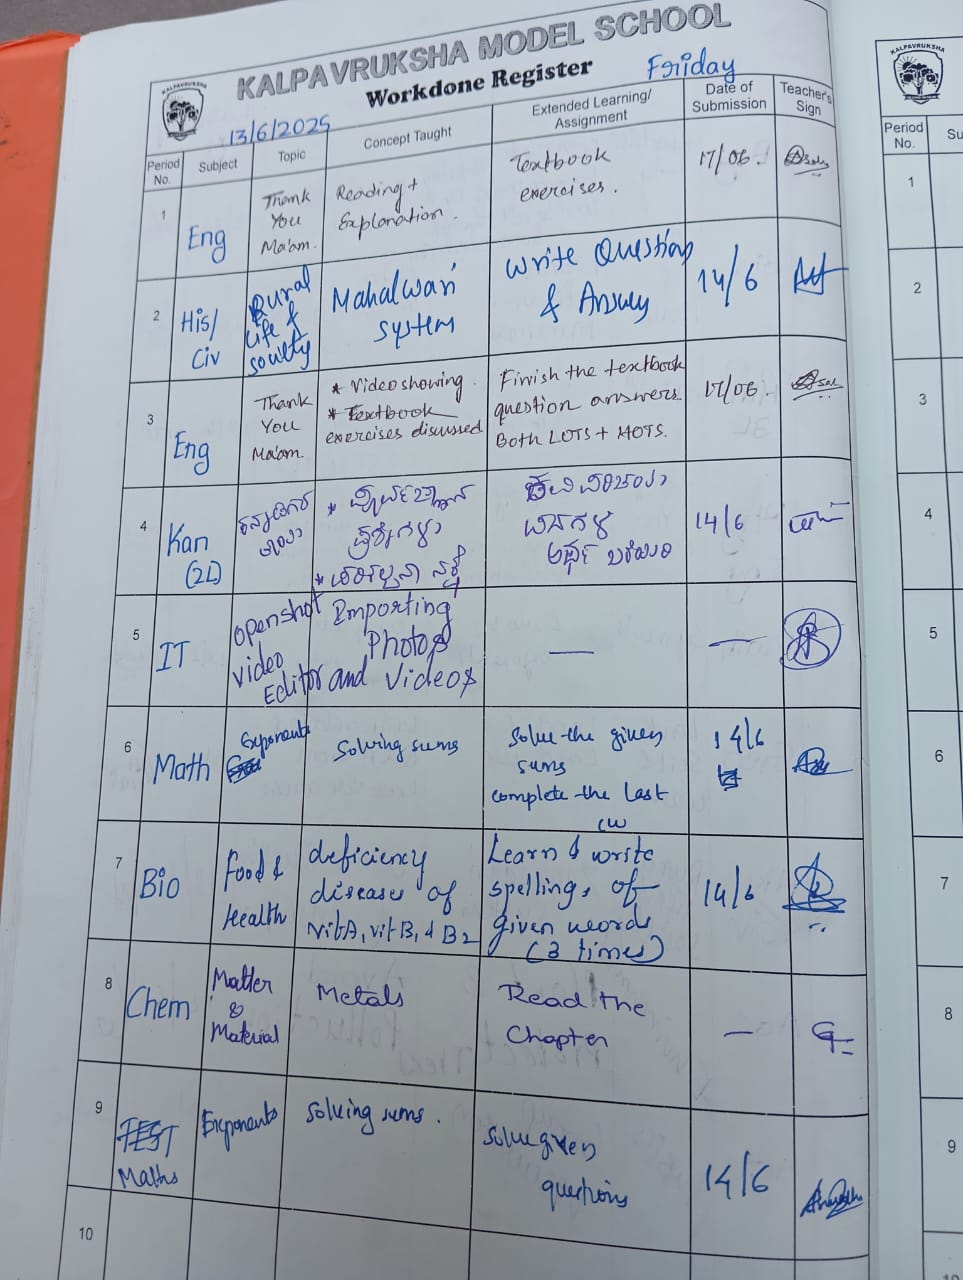 KALPAVRUKSHA MODEL SCHOOL
Workdone Register
Friday
13/6/2025
Period No. Subject Topic Concept Taught Extended Learning/ Assignment Date of Submission Teacher's Sign
1 Eng Thank You Ma'am. Reading + Explanation. Textbook exercises. 17/06.
2 His/ Civ Rural life & society Mahalwari system Write Question & Answer 14/6
3 Eng Thank You Ma'am. * Video showing. * Textbook exercises discussed Finish the textbook question answers. Both LOTS + HOTS. 17/06.
4 Kan (2L) 14/6
5 IT Openshot video Editor Importing Photos and Videos — —
6 Math Exponents Solving sums Solve the given sums complete the last CW 14/6
7 Bio Food & Health deficiency diseases of Vit A, vit B1 & B2 Learn & write spellings of given words (3 times) 14/6
8 Chem Matter & Material Metals Read the Chapter —
9 TEST Maths Exponents Solving sums. Solve given questions 14/6
10
KALPAVRUKSHA
Period No. Su
1
2
3
4
5
6
7
8
9